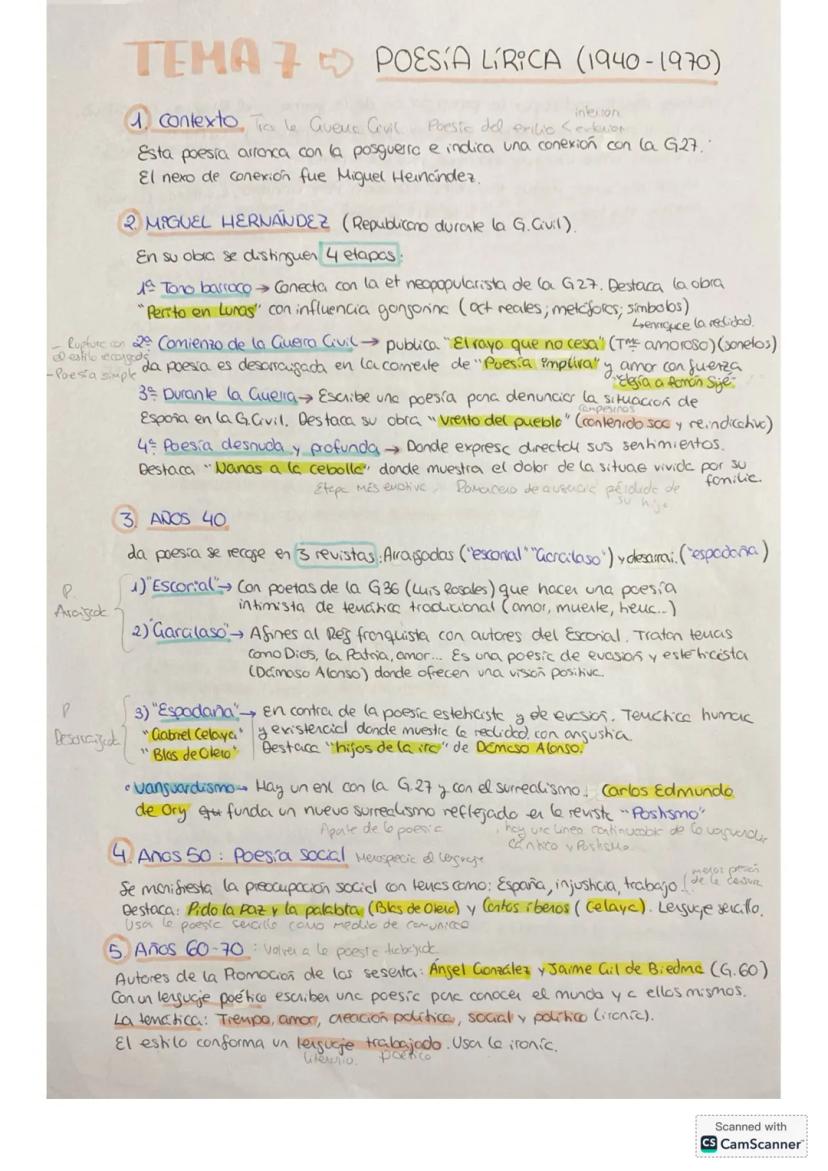 TEMA 7 ⇨ POESÍA LÍRICA (1940-1970)
1. Contexto. Tras la Guerra Civil. Poesía del exilio < interior exterior
Esta poesía arranca con la posguerra e indica una conexión con la G27.
El nexo de conexión fue Miguel Hernández.
2. MIGUEL HERNÁNDEZ (Republicano durante la G.Civil).
En su obra se distinguen 4 etapas:
1ª Tono barroco → Conecta con la et neopopularista de la G27. Destaca la obra
"Perito en Lunas" con influencia gongorina (oct reales; metáforas; símbolos)
↳enriquece la realidad.
- Ruptura con el estilo recargado
- Poesía simple
2ª Comienzo de la Guerra Civil → publica "El rayo que no cesa" (Tma amoroso) (sonetos)
La poesía es desarraigada en la corriente de "Poesía impura" y amor con fuerza
"Elegía a Ramón Sijé".
3ª Durante la Guerra → Escribe una poesía para denunciar la situación de
campesinos
España en la G.Civil. Destaca su obra "Viento del pueblo" (contenido soc y reindicativo)
4ª Poesía desnuda y profunda → Donde expresa direct sus sentimientos.
Destaca "Nanas a la cebolla" donde muestra el dolor de la situac vivida por su
familia.
Etapa más emotiva. Romancero de ausencia pérdida de
su hijo
3. AÑOS 40
La poesía se recoge en 3 revistas: Arraigadas ("escorial" "Garcilaso") y desarrai. ("espadaña")
P. Arraigada
1) "Escorial" → Con poetas de la G36 (Luis Rosales) que hacen una poesía
intimista de temática tradicional (amor, muerte, heuc...)
2) "Garcilaso" → Afines al Reg franquista con autores del Escorial. Tratan temas
como Dios, la Patria, amor... Es una poesía de evasión y esteticista
(Dámaso Alonso) donde ofrecen una visión positiva.
P Desarraigada
3) "Espadaña" → en contra de la poesía esteticista y de evasión. Temática humana
"Gabriel Celaya" y existencial donde muestra la realidad con angustia.
"Blas de Otero" Destaca "hijos de la ira" de Dámaso Alonso.
• Vanguardismo → Hay un enl con la G.27 y con el surrealismo. Carlos Edmundo
de Ory funda un nuevo surrealismo reflejado en la revista "Postismo"
Aparte de la poesía , hay una línea continuable de la vanguardia,
Cántico y Postismo
4. Años 50: Poesía social Menosprecia el lenguaje
Se manifiesta la preocupación social con temas como: España, injusticia, trabajo
menor presión de la censura
Destaca: Pido la Paz y la palabra (Blas de Otero) y Cantos iberos (Celaya). Lenguaje sencillo.
Usan la poesía sencilla como medio de comunicac
5. Años 60-70: Volver a la poesía trabajada.
Autores de la Promoción de los sesenta: Ángel González y Jaime Gil de Biedma (G.60)
Con un lenguaje poético escriben una poesía para conocer el mundo y a ellos mismos.
La temática: Tiempo, amor, creación política, social y político (ironía).
El estilo conforma un lenguaje trabajado. Usan la ironía.
literario. poético
Scanned with
CS CamScanner